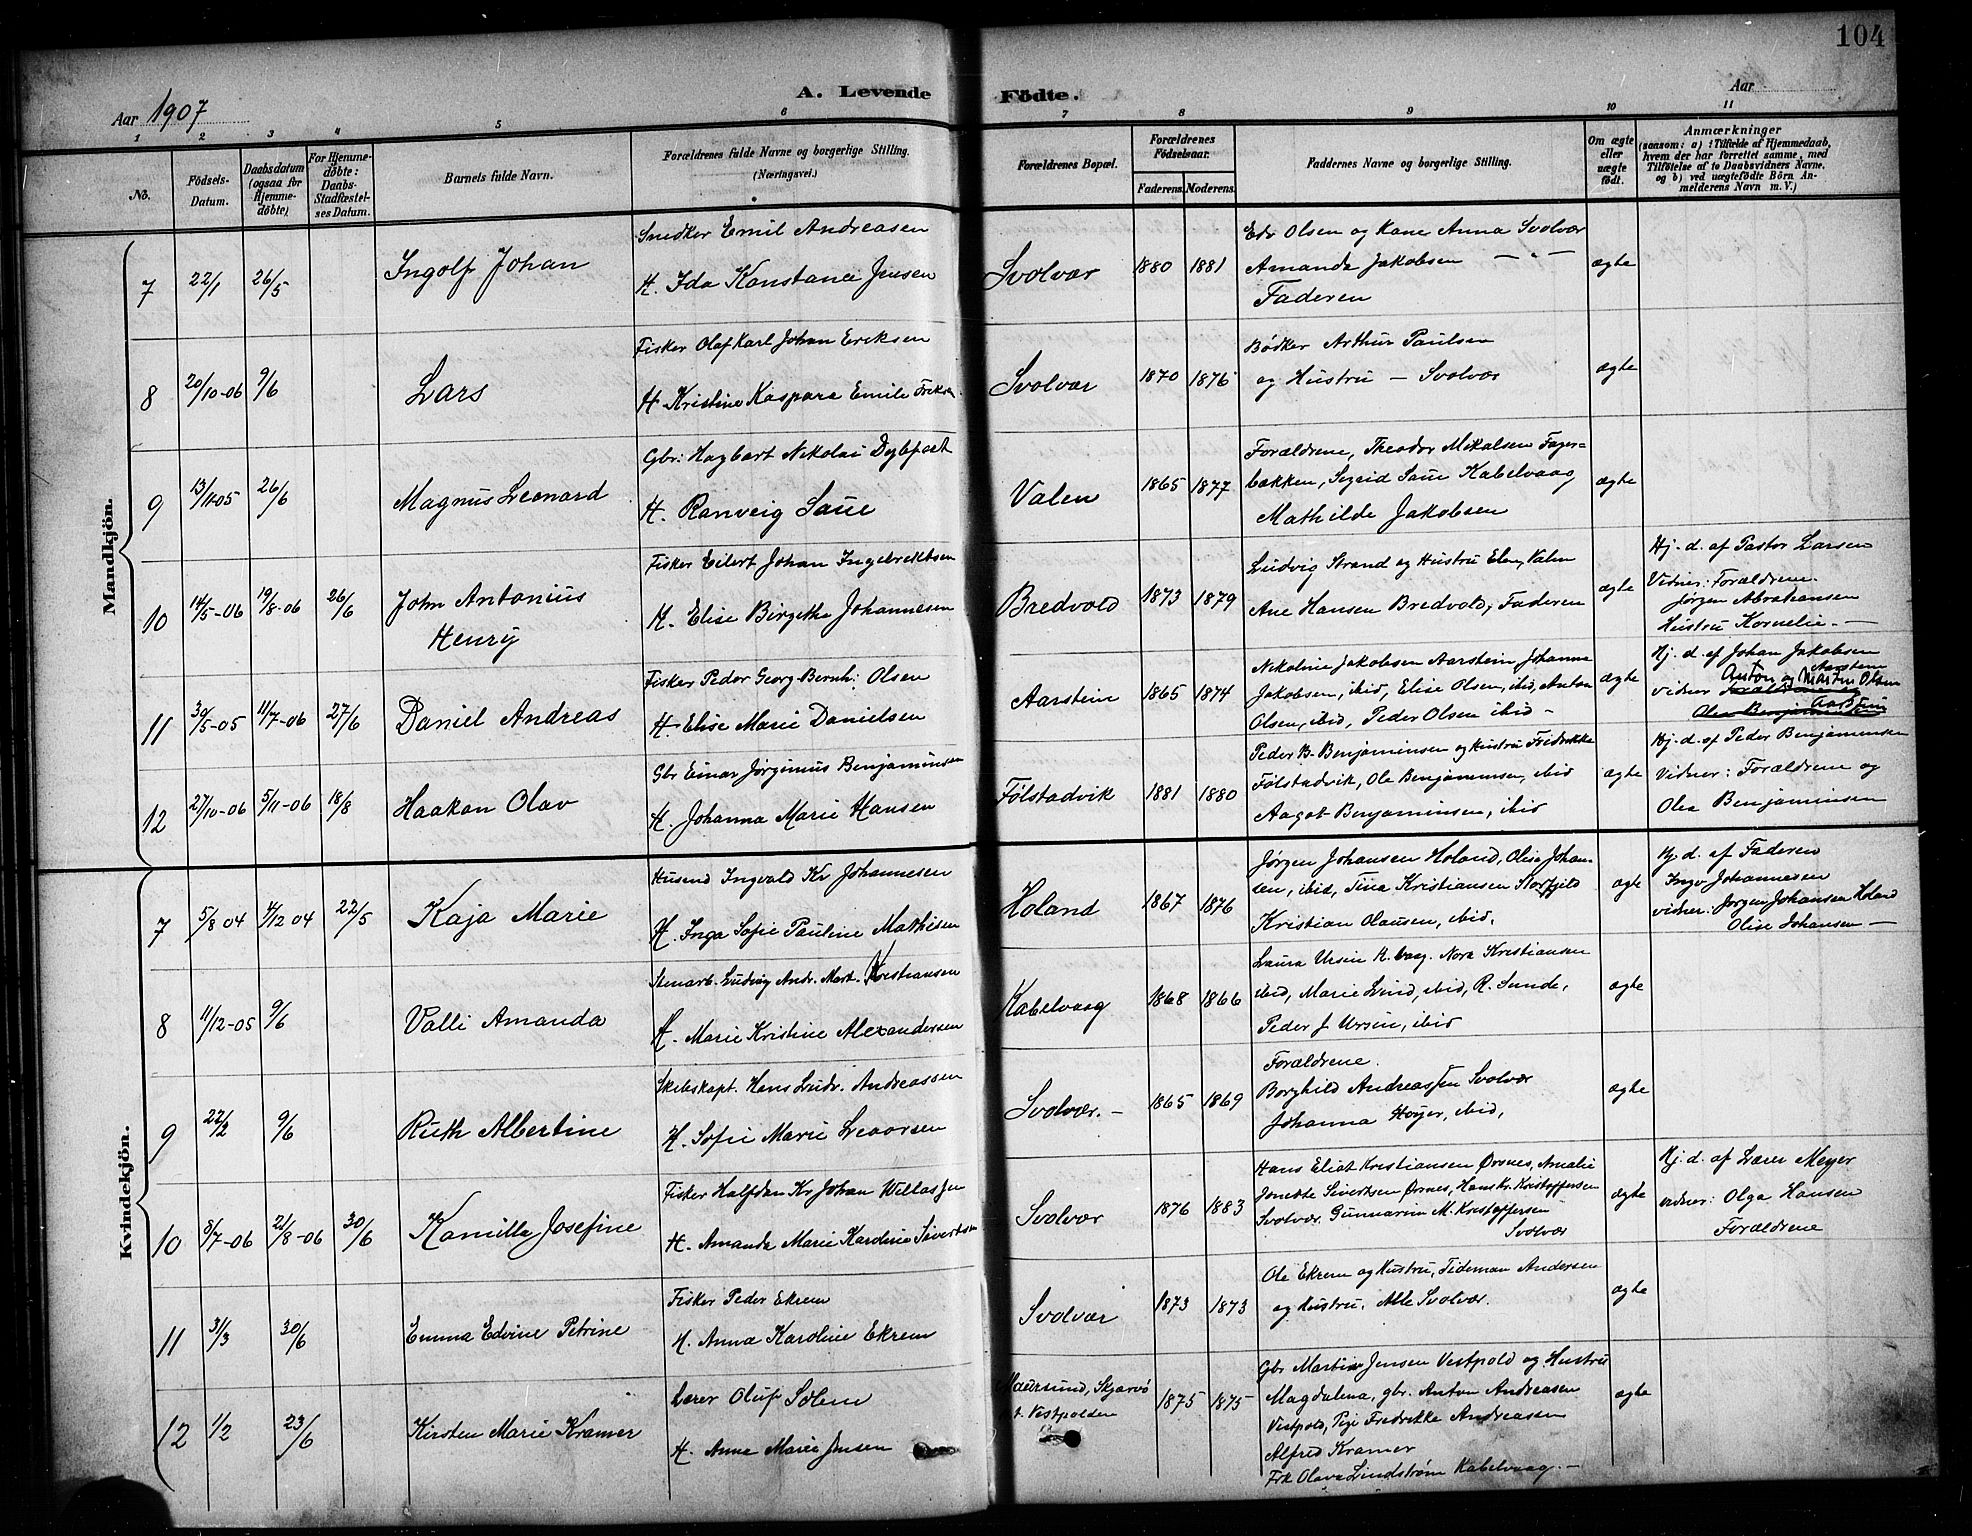 104
A. Levende Födte.
Aar 1907
Aar
1 2 3 4 5 6 7 8 9 10 11
No.
Födsels-Datum.
Daabsdatum (ogsaa for Hjemme-döbte)
For Hjemme-döbte: Daabs-Stadfæstel-ses Datum.
Barnets fulde Navn.
Forældrenes fulde Navne og borgerlige Stilling. (Næringsvei.)
Forældrenes Bopæl.
Forældrenes Födselsaar.
Faderens. Moderens.
Faddernes Navne og borgerlige Stilling.
Om ægte eller uægte födt.
Anmærkninger
(saasom: a) i Tilfælde af Hjemmedaab,
hvem der har forrettet samme, med
Tilföielse af to Daabsvidners Navne,
og b) ved uægtefödte Börn An-
melderens Navn m. V.)
Mandkjön.
7 22/1 26/5 Ingolf Johan
Snedker Emil Andreasen
H. Ida Konstance Jensen
Svolvær 1880 1881
Edv Olsen og Kone Anna Svolvær
Amanda Jakobsen — " —
Faderen
ægte
8 20/10-06 9/6 Lars
Fisker Olaf Karl Johan Eriksen
H. Kristine Kaspara Emilie
Svolvær 1870 1876
Bødker Arthur Paulsen
og Hustru — Svolvær
ægte
9 13/11-05 26/6 Magnus Leonard
Gbr: Hagbart Nikolai
H. Ranveig Saue
Valen 1865 1877
Forældrene, Theodor Mikalsen Fager-
bakken, Sigrid Saue Kabelvaag
Mathilde Jakobsen
ægte
10 14/5-06 19/8-06 26/6 John Antonius
Henry
Fisker Eilert Johan Ingebrektsen
H. Elise Birgitha Johannesen
Bredvold 1873 1879
Ludvig Strand og Hustru Elen, Valen
Ane Hansen Bredvold, Faderen
ægte
Hj. d. af Pastor Larsen
Vidner: Forældrene.
Jørgen Abrahamsen
Hustru Kornelie. —
11 30/5-05 11/7-06 27/6 Daniel Andreas
Fisker Peder Georg Bernh: Olsen
H. Elise Marie Danielsen
Aarstein 1865 1874
Nikoline Jakobsen Aarstein Johanna
Jakobsen, ibid, Elise Olsen, ibid, Anton
Olsen, ibid, Peder Olsen ibid —
ægte
Hj. d. af Johan Jakobsen
Aarstein
vidner Anton og Martin Olsen
Aarstein
12 27/10-06 5/11-06 18/8 Haakon Olav
Gbr Einar Jørginius Benjaminsen
H. Johanna Marie Hansen
Følstadvik 1881 1880
Peder B. Benjaminsen og Hustru Fredrikke
Følstadvik, Ole Benjaminsen, ibid
Aagot Benjaminsen, ibid
ægte
Hj. d. af Peder Benjaminsen
Vidner: Forældrene og
Olea Benjaminsen
Kvindekjön.
7 5/8 04 4/12 04 22/5 Kaja Marie
Husmd Ingvald Kr Johannesen
H. Inga Sofie Pauline Mathisen
Holand 1867 1876
Jørgen Johansen Holand, Olise Johan-
sen, ibid, Tina Kristiansen Storfjeld
Kristian Olausen, ibid.
ægte
Hj. d. af Faderen
Ingv Johannesen
vidner: Jørgen Johansen Holand
Olise Johansen —
8 11/12-05 9/6 Valli Amanda
Stenarb. Ludvig Andr. Mart. Kristiansen
H. Marie Kristine Alexandersen
Kabelvaag 1868 1866
Laura Ursin K.vaag. Nora Kristiansen
ibid, Marie Lind, ibid, R. Sunde,
Peder J Ursin, ibid
ægte
9 22/2 9/6 Ruth Albertine
Skibskapt. Hans Ludv. Andreassen
H. Sofie Marie
Svolvær. — 1865 1869
Forældrene.
Borghild Andreassen Svolvær
Johanna Høyer, ibid,
ægte
10 8/7-06 21/8-06 30/6 Kamilla Josefine
Fisker Halfdan Kr Johan Willassen
H. Amanda Marie Karoline Sivertsen
Svolvær 1876 1883
Hans Eliat Kristiansen Ørsnes, Amalie
Jonette Sivertsen Ørsnes, Hans Kr. Kristoffersen
Svolvær. Gunnarine M. Kristoffersen
Svolvær
ægte
Hj. d. af Lærer Meyer
vidner: Olga Hansen
Forældrene
11 31/3 30/6 Emma Edvine Petrine
Fisker Peder Ekrem
H. Anna Karoline Ekrem
Svolvær 1873 1873
Ole Ekrem og Hustru, Tideman Andersen
og Hustru. Alle Svolvær.
ægte
12 1/2 23/6 Kirsten Marie Kramer
Lærer Oluf Solem
H. Anna Marie Jensen
Maursund, Skjærvø
p.t. Vestpolden
1875 1875
Gbr Martin Jensen Vestpold og Hustru
Magdalena, gbr. Anton Andreasen
Vestpold, Pige Fredrikke Andreassen
Alfred Kramer
Frk Olava Lindstrøm Kabelvaag. —
ægte